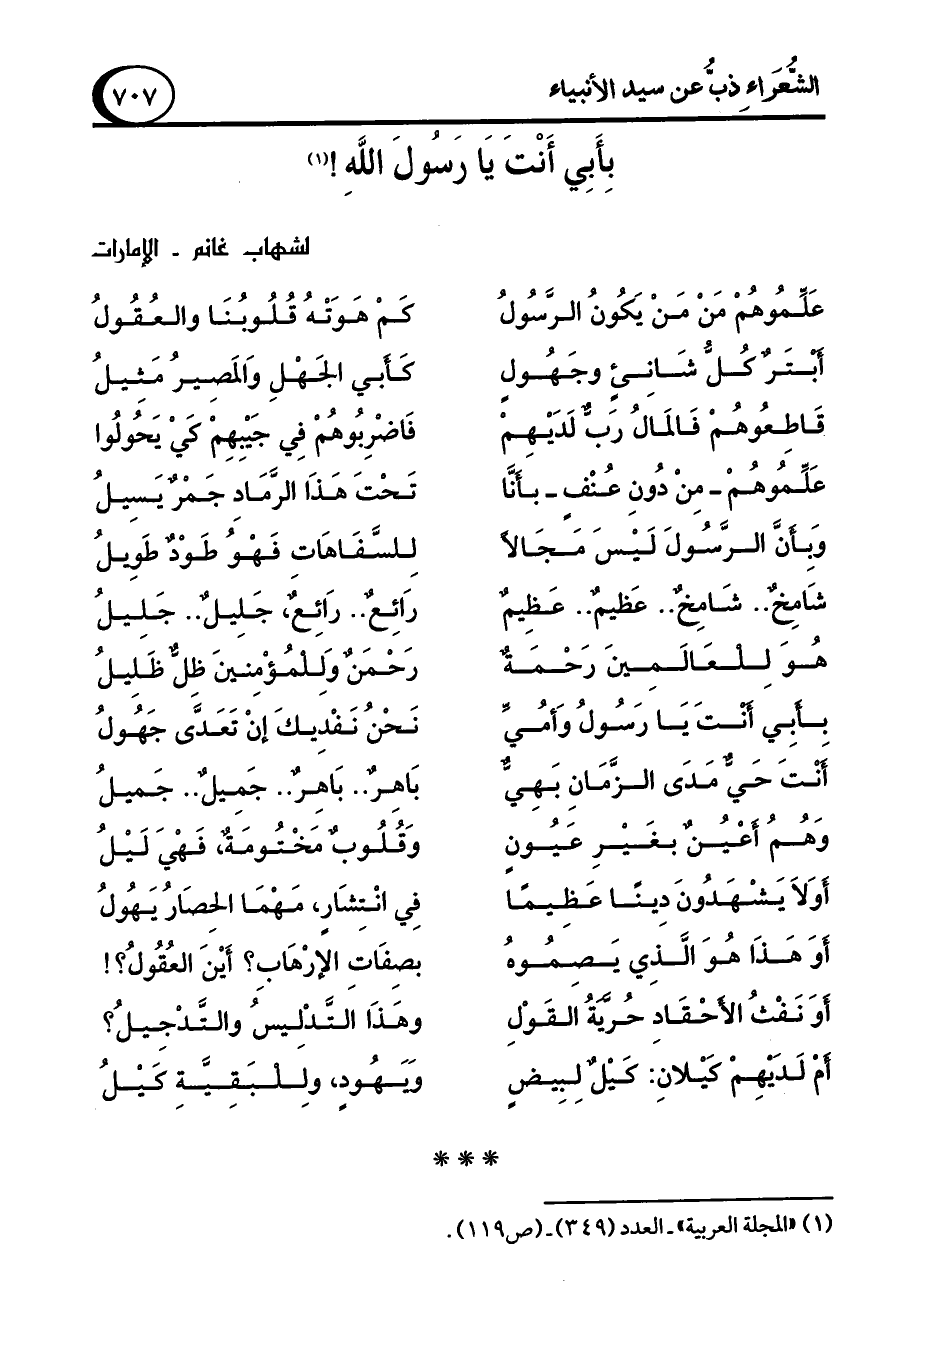 الشُّعَرَاءِ ذبُّ عن سيد الأنبياء ٧٠٧
بِأَبِي أَنْتَ يَا رَسُولَ اللَّهِ !(١)
لشهاب غانم - الإمارات
عَلِّمُوهُمْ مَنْ مَنْ يَكُونُ الرَّسُولُ كَمْ هَوَتْهُ قُلُوبُنَا والعُقُولُ
أَبْتَرٌ كُلُّ شَانِئٍ وجَهُولٍ كَأَبِي الجَهْلِ وَالمَصِيرُ مَثِيلُ
قَاطِعُوهُمْ فَالمَالُ رَبٌّ لَدَيْهِمْ فَاضْرِبُوهُمْ فِي جَيْبِهِمْ كَيْ يَحُولُوا
عَلِّمُوهُمْ - مِنْ دُونِ عُنْفٍ - بِأَنَّا تَحْتَ هَذَا الرَّمَادِ جَمْرٌ يَسِيلُ
وَبِأَنَّ الرَّسُولَ لَيْسَ مَجَالاً لِلسَّفَاهَاتِ فَهْوُ طَوْدٌ طَوِيلُ
شَامِخٌ.. شَامِخٌ.. عَظِيمٌ.. عَظِيمٌ رَائِعٌ.. رَائِعٌ، جَلِيلٌ.. جَلِيلُ
هُوَ لِلْعَالَمِينَ رَحْمَةُ رَحْمَنٌ وَلِلْمُؤْمِنِينَ ظِلٌّ ظَلِيلُ
بِأَبِي أَنْتَ يَا رَسُولُ وَأُمِّيِّ نَحْنُ نَفْدِيكَ إِنْ تَعَدَّى جَهُولُ
أَنْتَ حَيٌّ مَدَى الزَّمَانِ بَهِيٌّ بَاهِرٌ.. بَاهِرٌ.. جَمِيلٌ.. جَمِيلُ
وَهُمُ أَعْيُنٌ بِغَيْرِ عُيُونٍ وَقُلُوبٌ مَخْتُومَةٌ، فَهْيَ لَيْلُ
أَوَلاَ يَشْهَدُونَ دِينًا عَظِيمًا فِي انْتِشَارٍ، مَهْمَا الحِصَارُ يَهُولُ
أَوَ هَذَا هُوَ الَّذِي يَصِمُوهُ بِصِفَاتِ الإِرْهَابِ؟ أَيْنَ العُقُولُ؟!
أَوَ نَفْثُ الأَحْقَادِ حُرِّيَّةُ القَوْلِ وهَذَا التَّدْلِيسُ والتَّدْجِيلُ؟
أَمْ لَدَيْهِمْ كَيْلانِ: كَيْلٌ لِبِيضٍ وَيَهُودٍ، ولِلْبَقِيَّةِ كَيْلُ
***
(١) «المجلة العربية» - العدد (٣٤٩) - (ص١١٩).